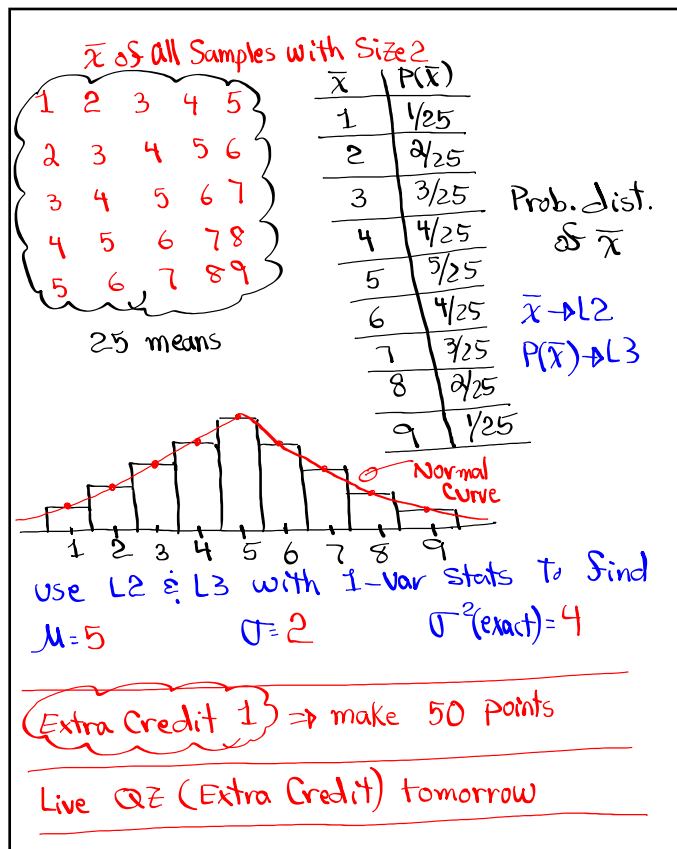 x̄ of all Samples with Size 2
1 2 3 4 5
2 3 4 5 6
3 4 5 6 7
4 5 6 7 8
5 6 7 8 9
25 means
x̄ P(x̄)
1 1/25
2 2/25
3 3/25
4 4/25
5 5/25
6 4/25
7 3/25
8 2/25
9 1/25
Prob. dist.
of x̄
x̄ → L2
P(x̄) → L3
Normal
Curve
1 2 3 4 5 6 7 8 9
use L2 & L3 with 1-Var Stats To find
μ = 5 σ = 2 σ²(exact) = 4
Extra Credit 1 ⇒ make 50 points
Live QZ (Extra Credit) tomorrow